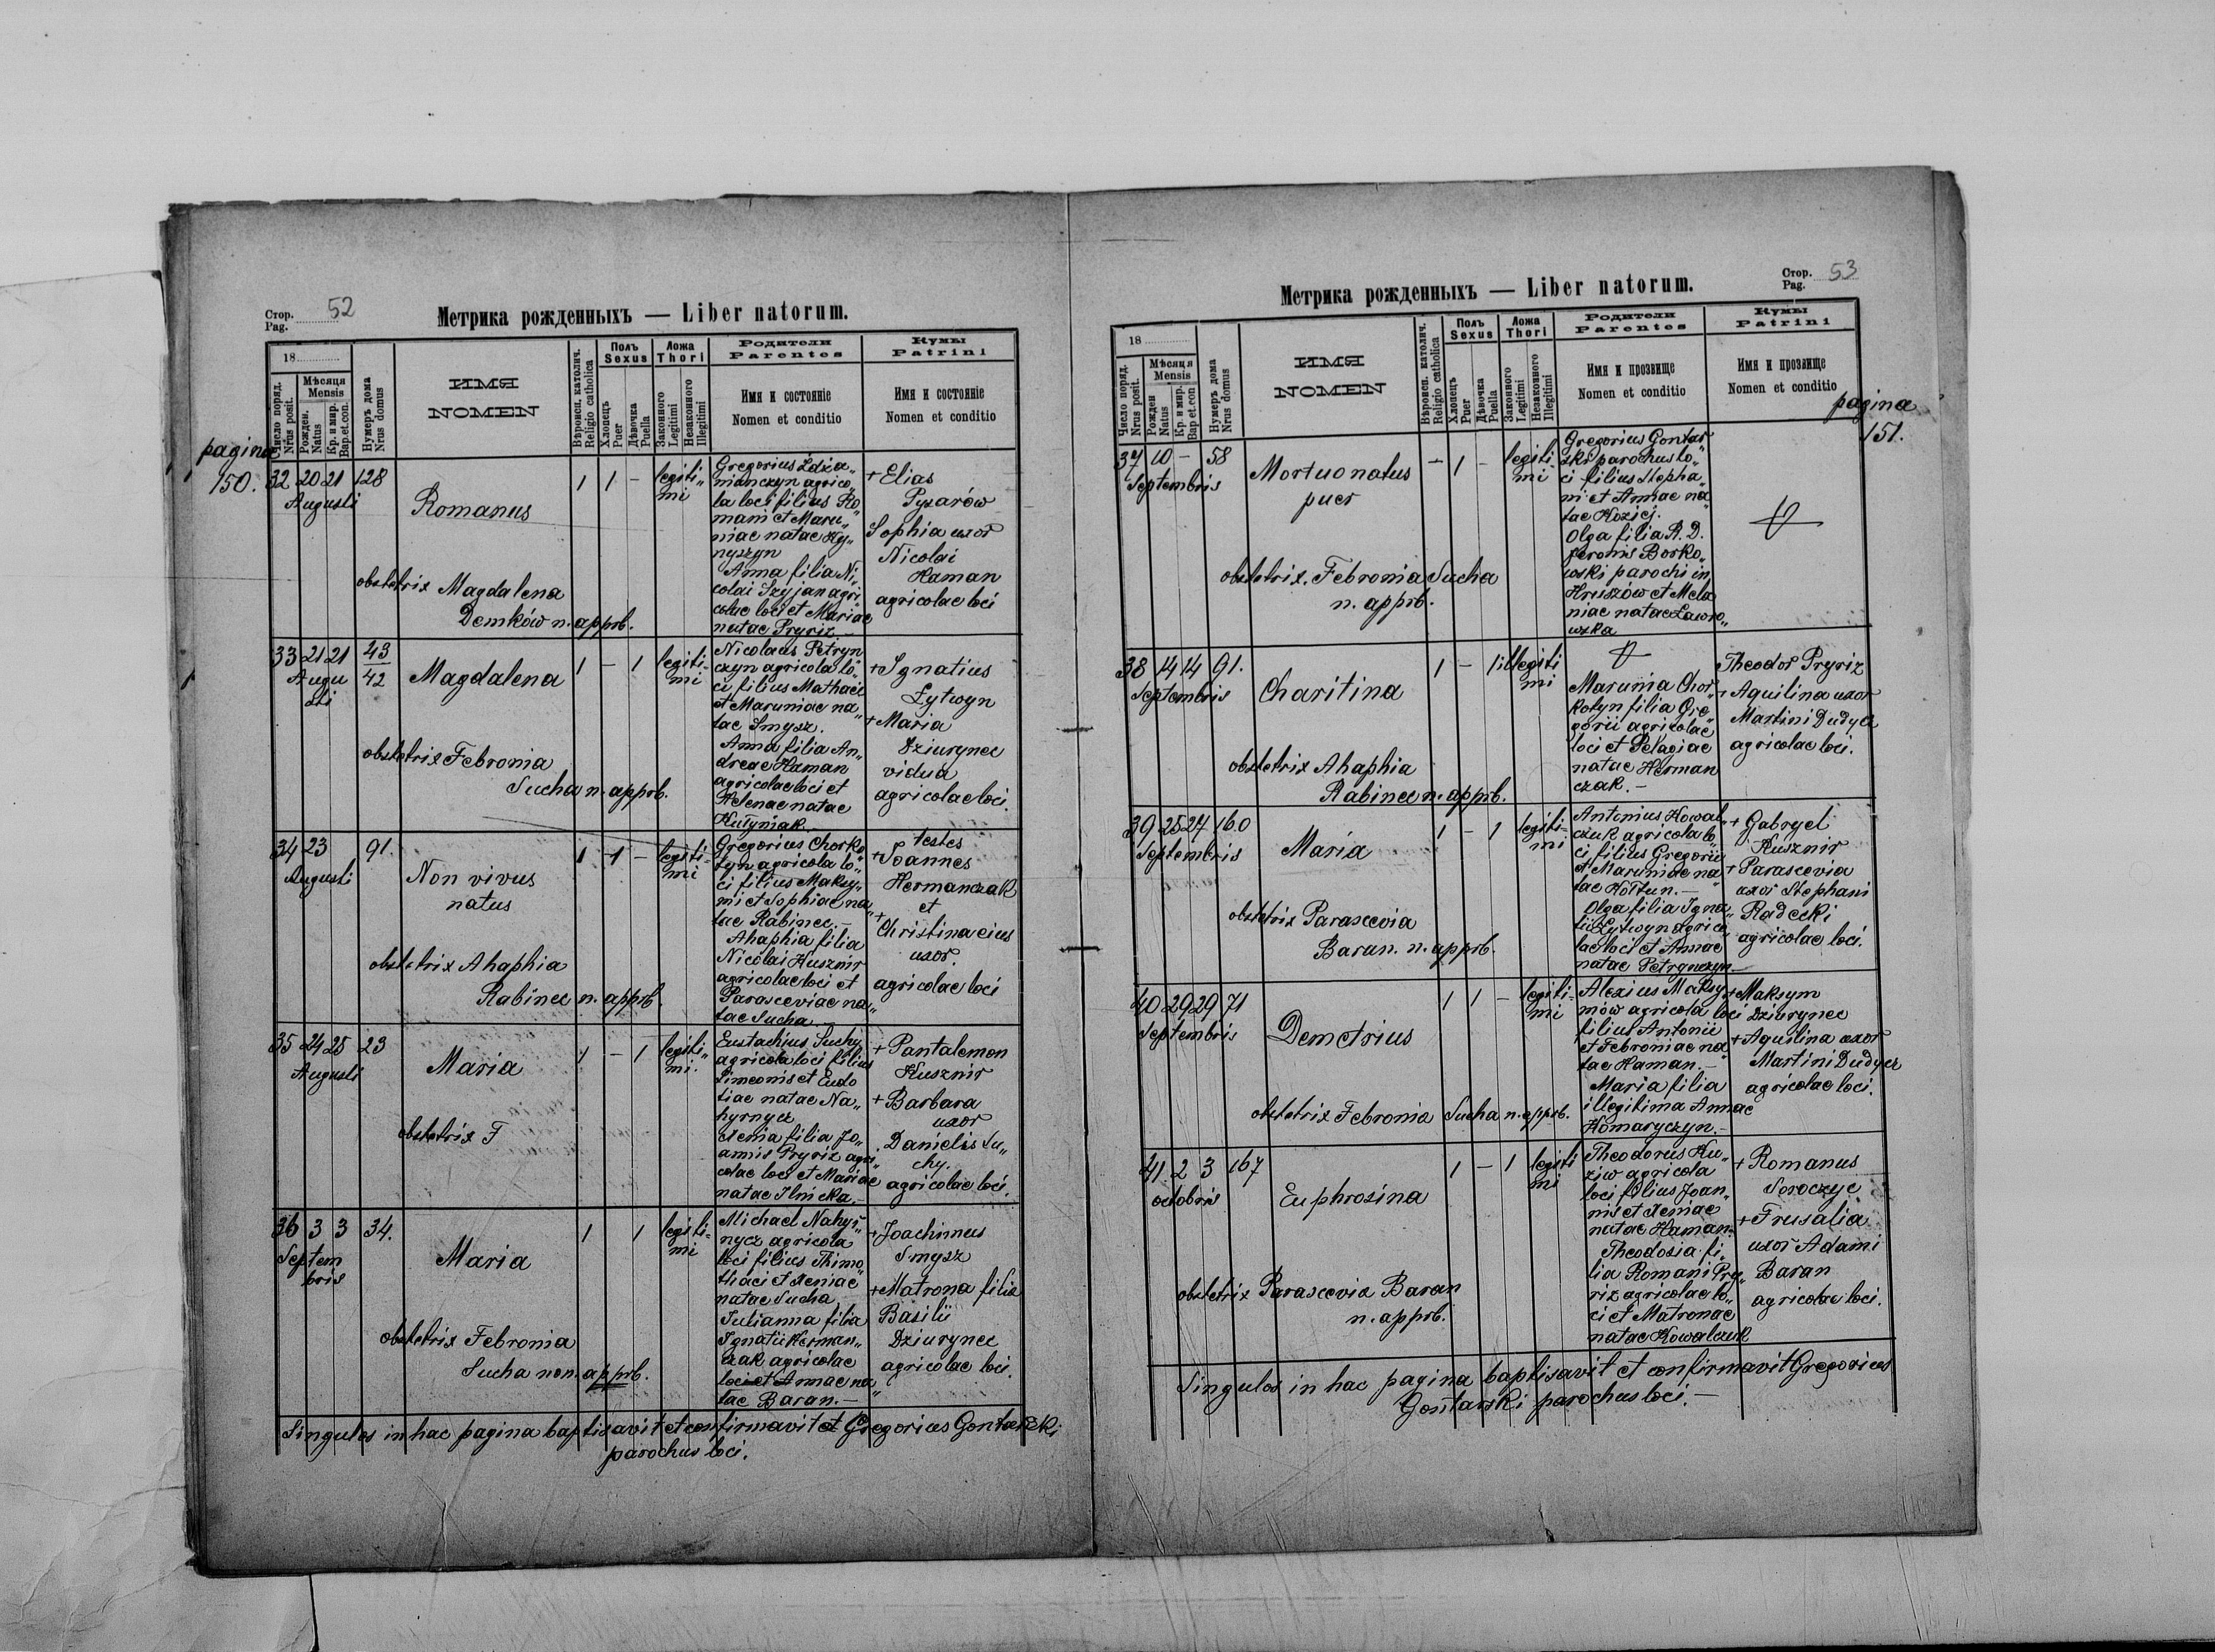 Стор. Pag. 52
Метрика рожденныхъ — Liber natorum.
18
Число поряд. Nrus posit.
Мѣсяця Mensis
Рожден. Natus
Кр. и мир. Bap.et.con.
Нумеръ дома Nrus domus
ИМЯ
NOMEN
Вѣроисп. католич. Religio catholica
Полъ Sexus
Хлопець Puer
Дѣвочка Puella
Ложа Thori
Законного Legitimi
Незаконного Illegitimi
Родители
Parentes
Имя и состояніе
Nomen et conditio
Кумы
Patrini
Имя и состояніе
Nomen et conditio
pagina
150.
32 20 21 128
Augusti
Romanus
obstetrix Magdalena
Demków n. apprb.
1 1 -
legiti„
mi
Gregorius
manczyn agrico„
la loci filius Ro„
mani et Maru„
niae natae Hy„
nyszyn
Anna filia Ni„
colai Szyjan agri„
colae loci et Mariae
natae Pryriz.—
+ Elias
Pyzarów
Sophia uxor
Nicolai
Haman
agricolae loci
33 21 21 43
42
Augu
sti
Magdalena
obstetrix Febronia
Sucha n. apprb.
1 - 1
legiti-
mi
Nicolaus Petryn
czyn agricola lo„
ci filius Mathaei
et Maruniae na„
tae Smysz.
Anna filia An„
dreae Haman
agricolae loci et
Helenae natae
Kutyniak.—
+ Ignatius
Lytwyn
+ Maria
Dziurynec
vidua
agricolae loci.
34 23 91.
Augusti
Non vivus
natus
obstetrix Ahaphia
Rabinec n. apprb.
1 1 -
legiti-
mi
Gregorius Chorko
tyn agricola lo„
ci filius Maksy„
mi et Sophiae na„
tae Rabinec.—
Ahaphia filia
Nicolai Kusznir
agricolae loci et
Parasceviae na„
tae Sucha.—
testes
+ Joannes
Hermanczak
et
+ Christina eius
uxor.
agricolae loci
35 24 25 23
Augusti
Maria
obstetrix F
1 - 1
legiti„
mi.
Eustachius Suchy
agricola loci filius
Simeonis et Eudo
tiae natae Na„
hyrnycz
Xenia filia Jo„
annis Pryriz agri„
colae loci et Mariae
natae Ilnicka.—
+ Pantalemon
Kusznir
+ Barbara
uxor
Danielis Su„
chy.
agricolae loci.
36 3 3 34.
Septem
bris
Maria
obstetrix Febronia
Sucha non. apprb.
1 1
legiti-
mi
Michael Nahyr„
nycz agricola
loci filius Thimo„
thaei et Xeniae
natae Sucha
Julianna filia
Ignatii Herman„
czak agricolae
loci et Annae na„
tae Baran.—
+ Joachimus
Smysz
+ Matrona filia
Basilii
Dziurynec
agricolae loci.
Singulos in hac pagina baptisavit et confirmavit et Gregorius Gontarski
parochus loci.
Стор. Pag. 53
Метрика рожденныхъ — Liber natorum.
18
Число поряд. Nrus posit.
Мѣсяця Mensis
Рожден Natus
Кр. и мир. Bap.et.con
Нумеръ дома Nrus domus
ИМЯ
NOMEN
Вѣроисп. католич. Religio catholica
Полъ Sexus
Хлопець Puer
Дѣвочка Puella
Ложа Thori
Законного Legitimi
Незаконного Illegitimi
Родители
Parentes
Имя и прозвище
Nomen et conditio
Кумы
Patrini
Имя и прозвище
Nomen et conditio
pagina
151.
37 10 - 58
Septembris
Mortuo natus
puer
obstetrix. Febronia Sucha
n. apprb.
- 1 -
legiti
mi
Gregorius Gontar„
ski parochus lo„
ci filius Stepha„
ni et Annae na„
tae Koziej.
Olga filia R. D.
Jeronis Borko„
wski parochi in
Hruszów et Mela„
niae natae Lawro„
wska
38 14 14 91.
Septembris
Charitina
obstetrix Ahaphia
Rabinec n. apprb.
1 - 1
illegiti
mi
Marunia Chor„
kotyn filia Gre„
gorii agricolae
loci et Pelagiae
natae Herman
czak.—
Theodor Pryriz
+ Aquilina uxor
Martini Dudycz
agricolae loci.
39 25 27 160
Septembris
Maria
obstetrix Parascevia
Baran. n. apprb.
1 - 1
legiti-
mi
Antonius Kowal„
czuk agricola lo„
ci filius Gregorii
et Maruniae na„
tae Kottun.—
Olga filia Igna„
tii Lytwyn agrico„
lae loci et Annae
natae Petrynczyn.—
+ Gabryel
Kusznir
+ Parascevia
uxor Stephani
Radecki
agricolae loci.
40 29 29 71
Septembris
Demetrius
obstetrix Febronia Sucha n. apprb.
1 1 -
legiti-
mi
Alexius Maksy„
mów agricola loci
filius Antonii
et Febroniae na„
tae Haman.—
Maria filia
illegitima Annae
Komaryczyn.—
+ Maksym
Dziurynec
+ Aquilina uxor
Martini Dudycz
agricolae loci.
41 2 3 167
octobris
Euphrosina
obstetrix Parascevia Baran
n. apprb.
1 - 1
legiti
mi
Theodorus Ku„
ziw agricola
loci filius Joan„
nis et Xeniae
natae Haman.
Theodosia fi„
lia Romani Pry„
riz agricolae lo„
ci et Matronae
natae Kowalczuk
+ Romanus
Soroczyc
+ Frusalia
uxor Adami
Baran
agricolae loci.
Singulos in hac pagina baptisavit et confirmavit Gregorius
Gontarski parochus loci.—